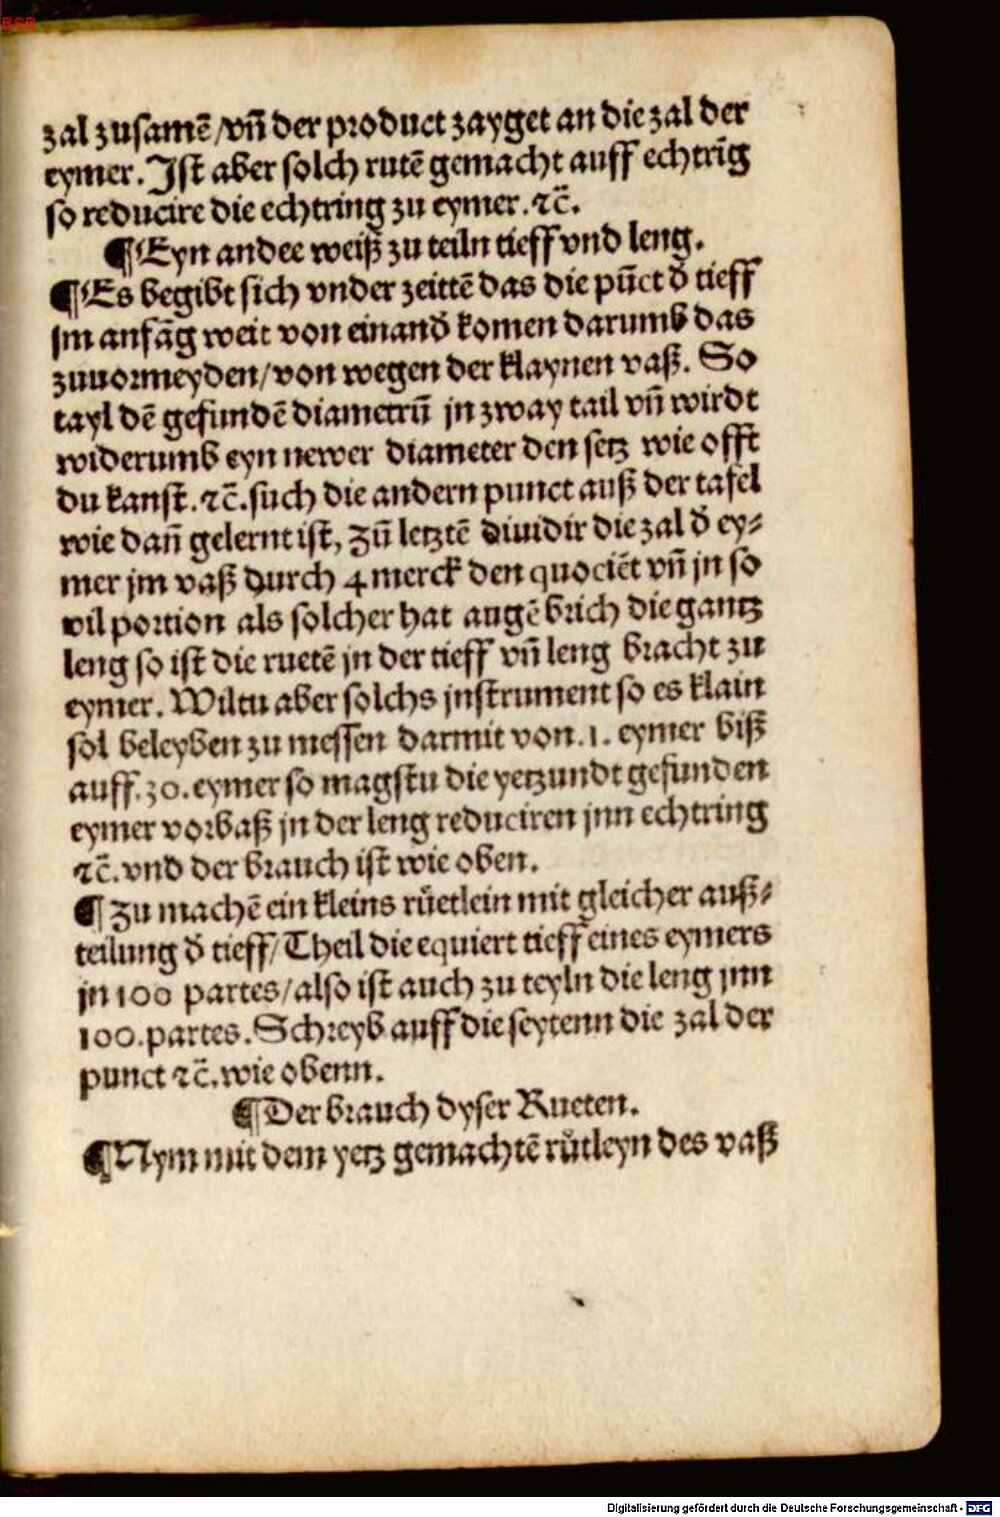 zal zusamē/vñ der product zayget an die zal der
eymer. Jst aber solch rutē gemacht auff echtrīg
so reducire die echtring zu eymer. ⁊c̄.
¶ Eyn andee weiß zu teiln tieff vnd leng.
¶ Es begibt sich vnder zeittē das die pūct d̄ tieff
jm anfāg weit von einand̄ komen darumb das
zuuormeyden/von wegen der klaynen vaß. So
tayl dē gefundē diametrū jn zway tail vñ wirdt
widerumb eyn newer diameter den setz wie offt
du kanst. ⁊c̄. such die andern punct auß der tafel
wie dañ gelernt ist, Zū letztē diuidir die zal d̄ ey⸗
mer jm vaß durch 4 merck den quociēt vñ jn so
vil portion als solcher hat augē brich die gantz
leng so ist die ruetē jn der tieff vñ leng bracht zu
eymer. Wiltu aber solchs jnstrument so es klain
sol beleyben zu messen darmit von .1. eymer biß
auff .30. eymer so magstu die yetzundt gefunden
eymer vorbaß jn der leng reduciren jnn echtring
⁊c̄. vnd der brauch ist wie oben.
¶ Zu machē ein kleins růetlein mit gleicher auß⸗
teilung d̄ tieff/Theil die equiert tieff eines eymers
jn 100 partes/also ist auch zu teyln die leng jnn
100. partes. Schreyb auff die seytenn die zal der
punct ⁊c̄. wie obenn.
¶ Der brauch dyser Rueten.
¶ Nym mit dem yetz gemachtē růtleyn des vaß
Digitalisierung gefördert durch die Deutsche Forschungsgemeinschaft - DFG